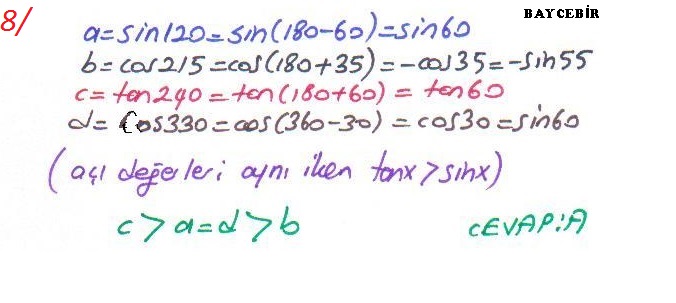 8/
BAYCEBİR
a=sin120=sin(180-60)=sin60
b=cos215=cos(180+35)=-cos35=-sin55
c=tan240=tan(180+60)=tan60
d=cos330=cos(360-30)=cos30=sin60
(açı değerleri aynı iken tanx>sinx)
c>a=d>b
CEVAP:A